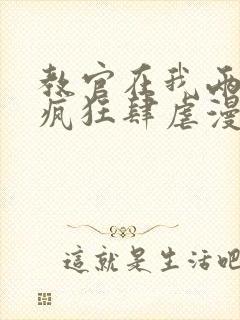 教官在我両
疯狂肆虐漫
這就是生活吧